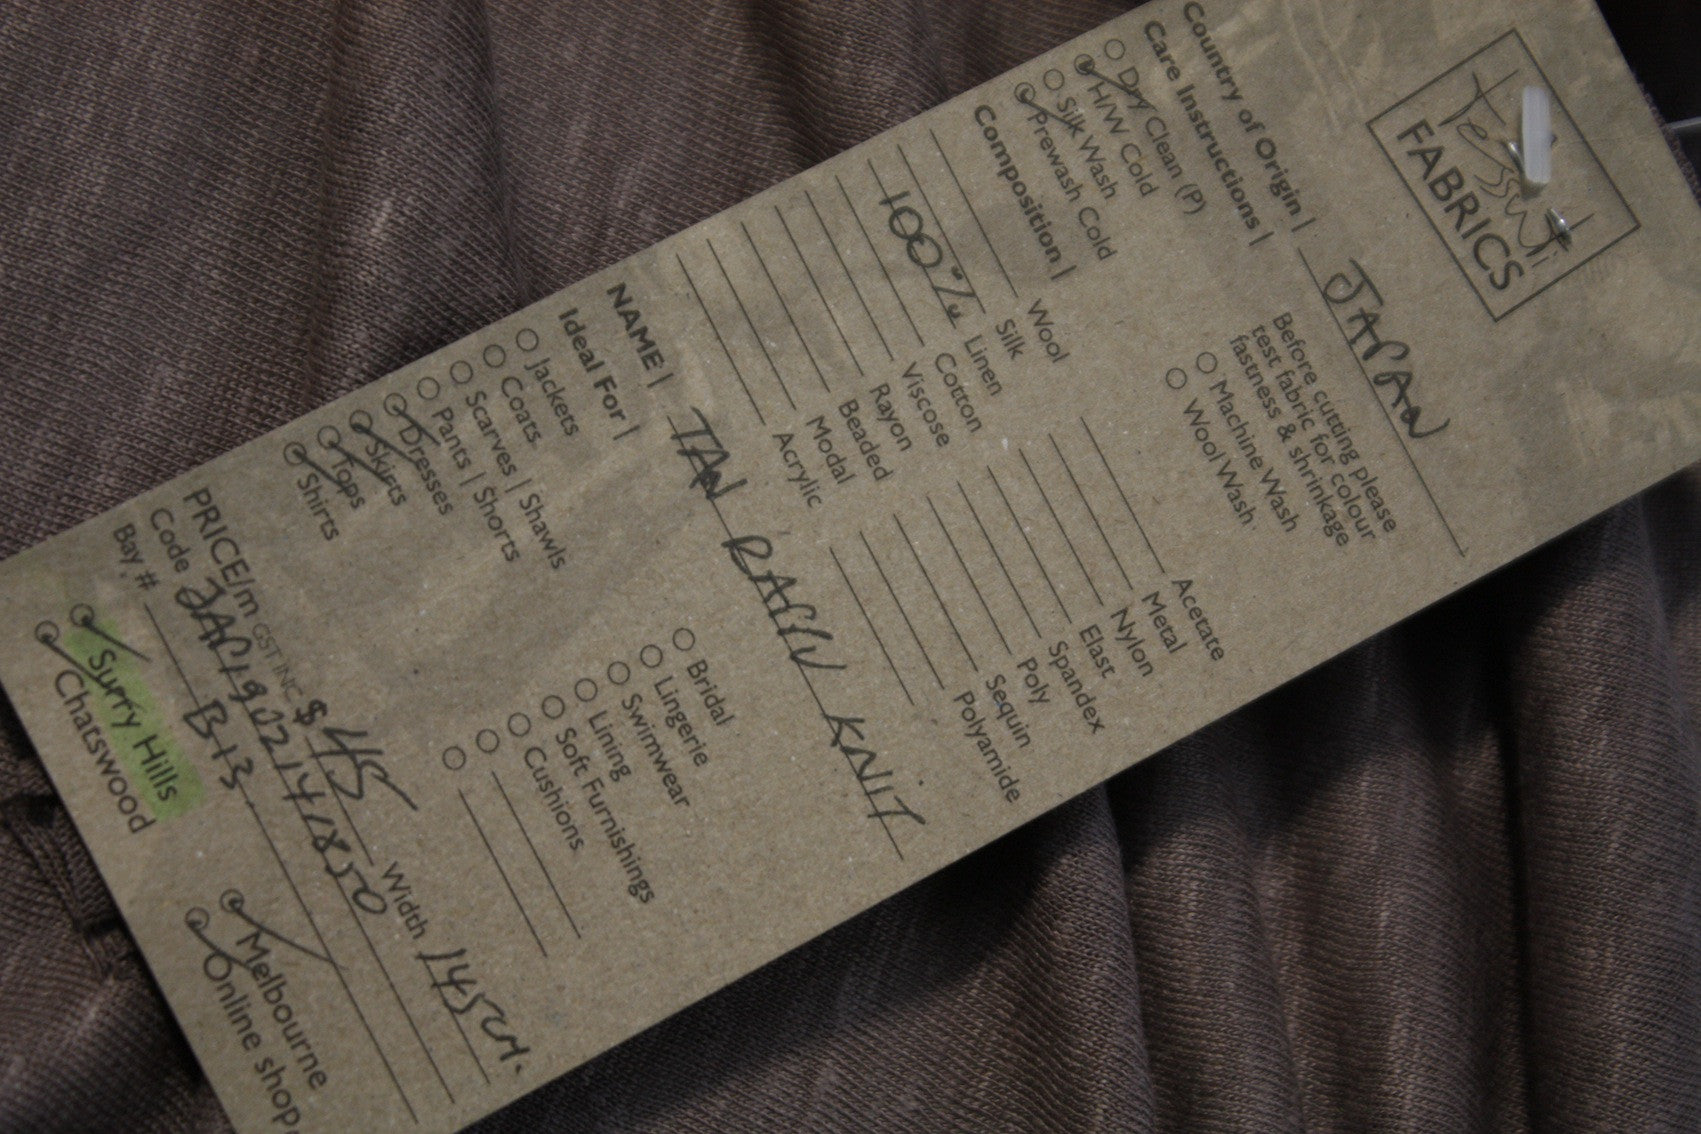 Tessuti
FABRICS
Country of Origin | JAPAN
Care Instructions |
Dry Clean (P)
H/W Cold
Silk Wash
Prewash Cold
Before cutting please
test fabric for colour
fastness & shrinkage
Machine Wash
Wool Wash
Composition |
Wool
Silk
100% Linen
Cotton
Viscose
Rayon
Beaded
Modal
Acrylic
Acetate
Metal
Nylon
Elast
Spandex
Poly
Sequin
Polyamide
NAME | TAN RAPLU KNIT
Ideal For |
Jackets
Coats
Scarves | Shawls
Pants | Shorts
Dresses
Skirts
Tops
Shirts
Bridal
Lingerie
Swimwear
Lining
Soft Furnishings
Cushions
PRICE/m GST INC $45 Width 145CM.
Code JAP190214/850
Bay # B13
Surry Hills
Chatswood
Melbourne
Online shop